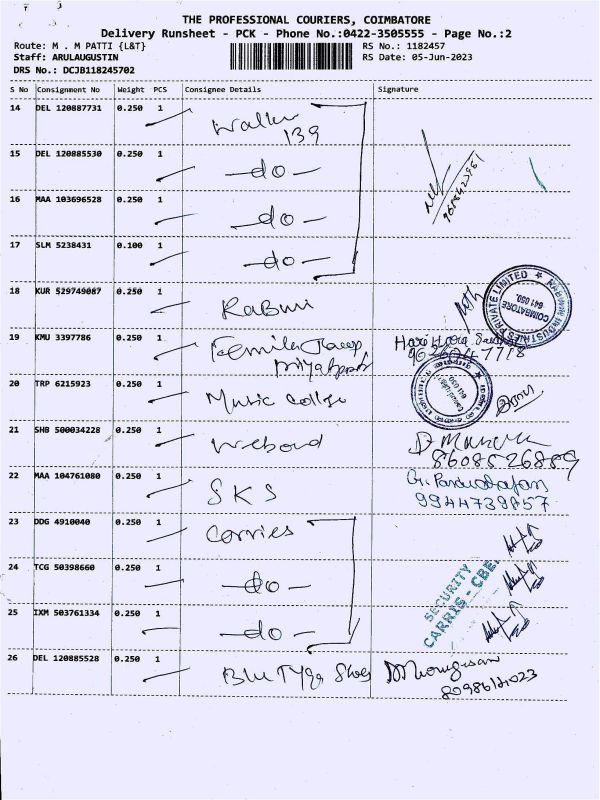 THE PROFESSIONAL COURIERS, COIMBATORE
Delivery Runsheet - PCK - Phone No.:0422-3505555 - Page No.:2
Route: M . M PATTI {L&T} RS No.: 1182457
Staff: ARULAUGUSTIN RS Date: 05-Jun-2023
DRS No.: DCJB118245702
S No Consignment No Weight PCS Consignee Details Signature
14 DEL 120887731 0.250 1
Walker
139
15 DEL 120885530 0.250 1
-do-
16 MAA 103696528 0.250 1
-do-
17 SLM 5238431 0.100 1
-do-
18 KUR 529749087 0.250 1
COIMBATORE
641 050.
19 KMU 3397786 0.250 1
20 TRP 6215923 0.250 1
Music college
21 SHB 500034228 0.250 1
8608526889
22 MAA 104761080 0.250 1
SKS
9944739857
23 DDG 4910040 0.250 1
Carries
24 TCG 50398660 0.250 1
-do-
SECURITY
CARRIS - CBE
25 IXM 503761334 0.250 1
-do-
26 DEL 120885528 0.250 1
Blu Tyga Shoes